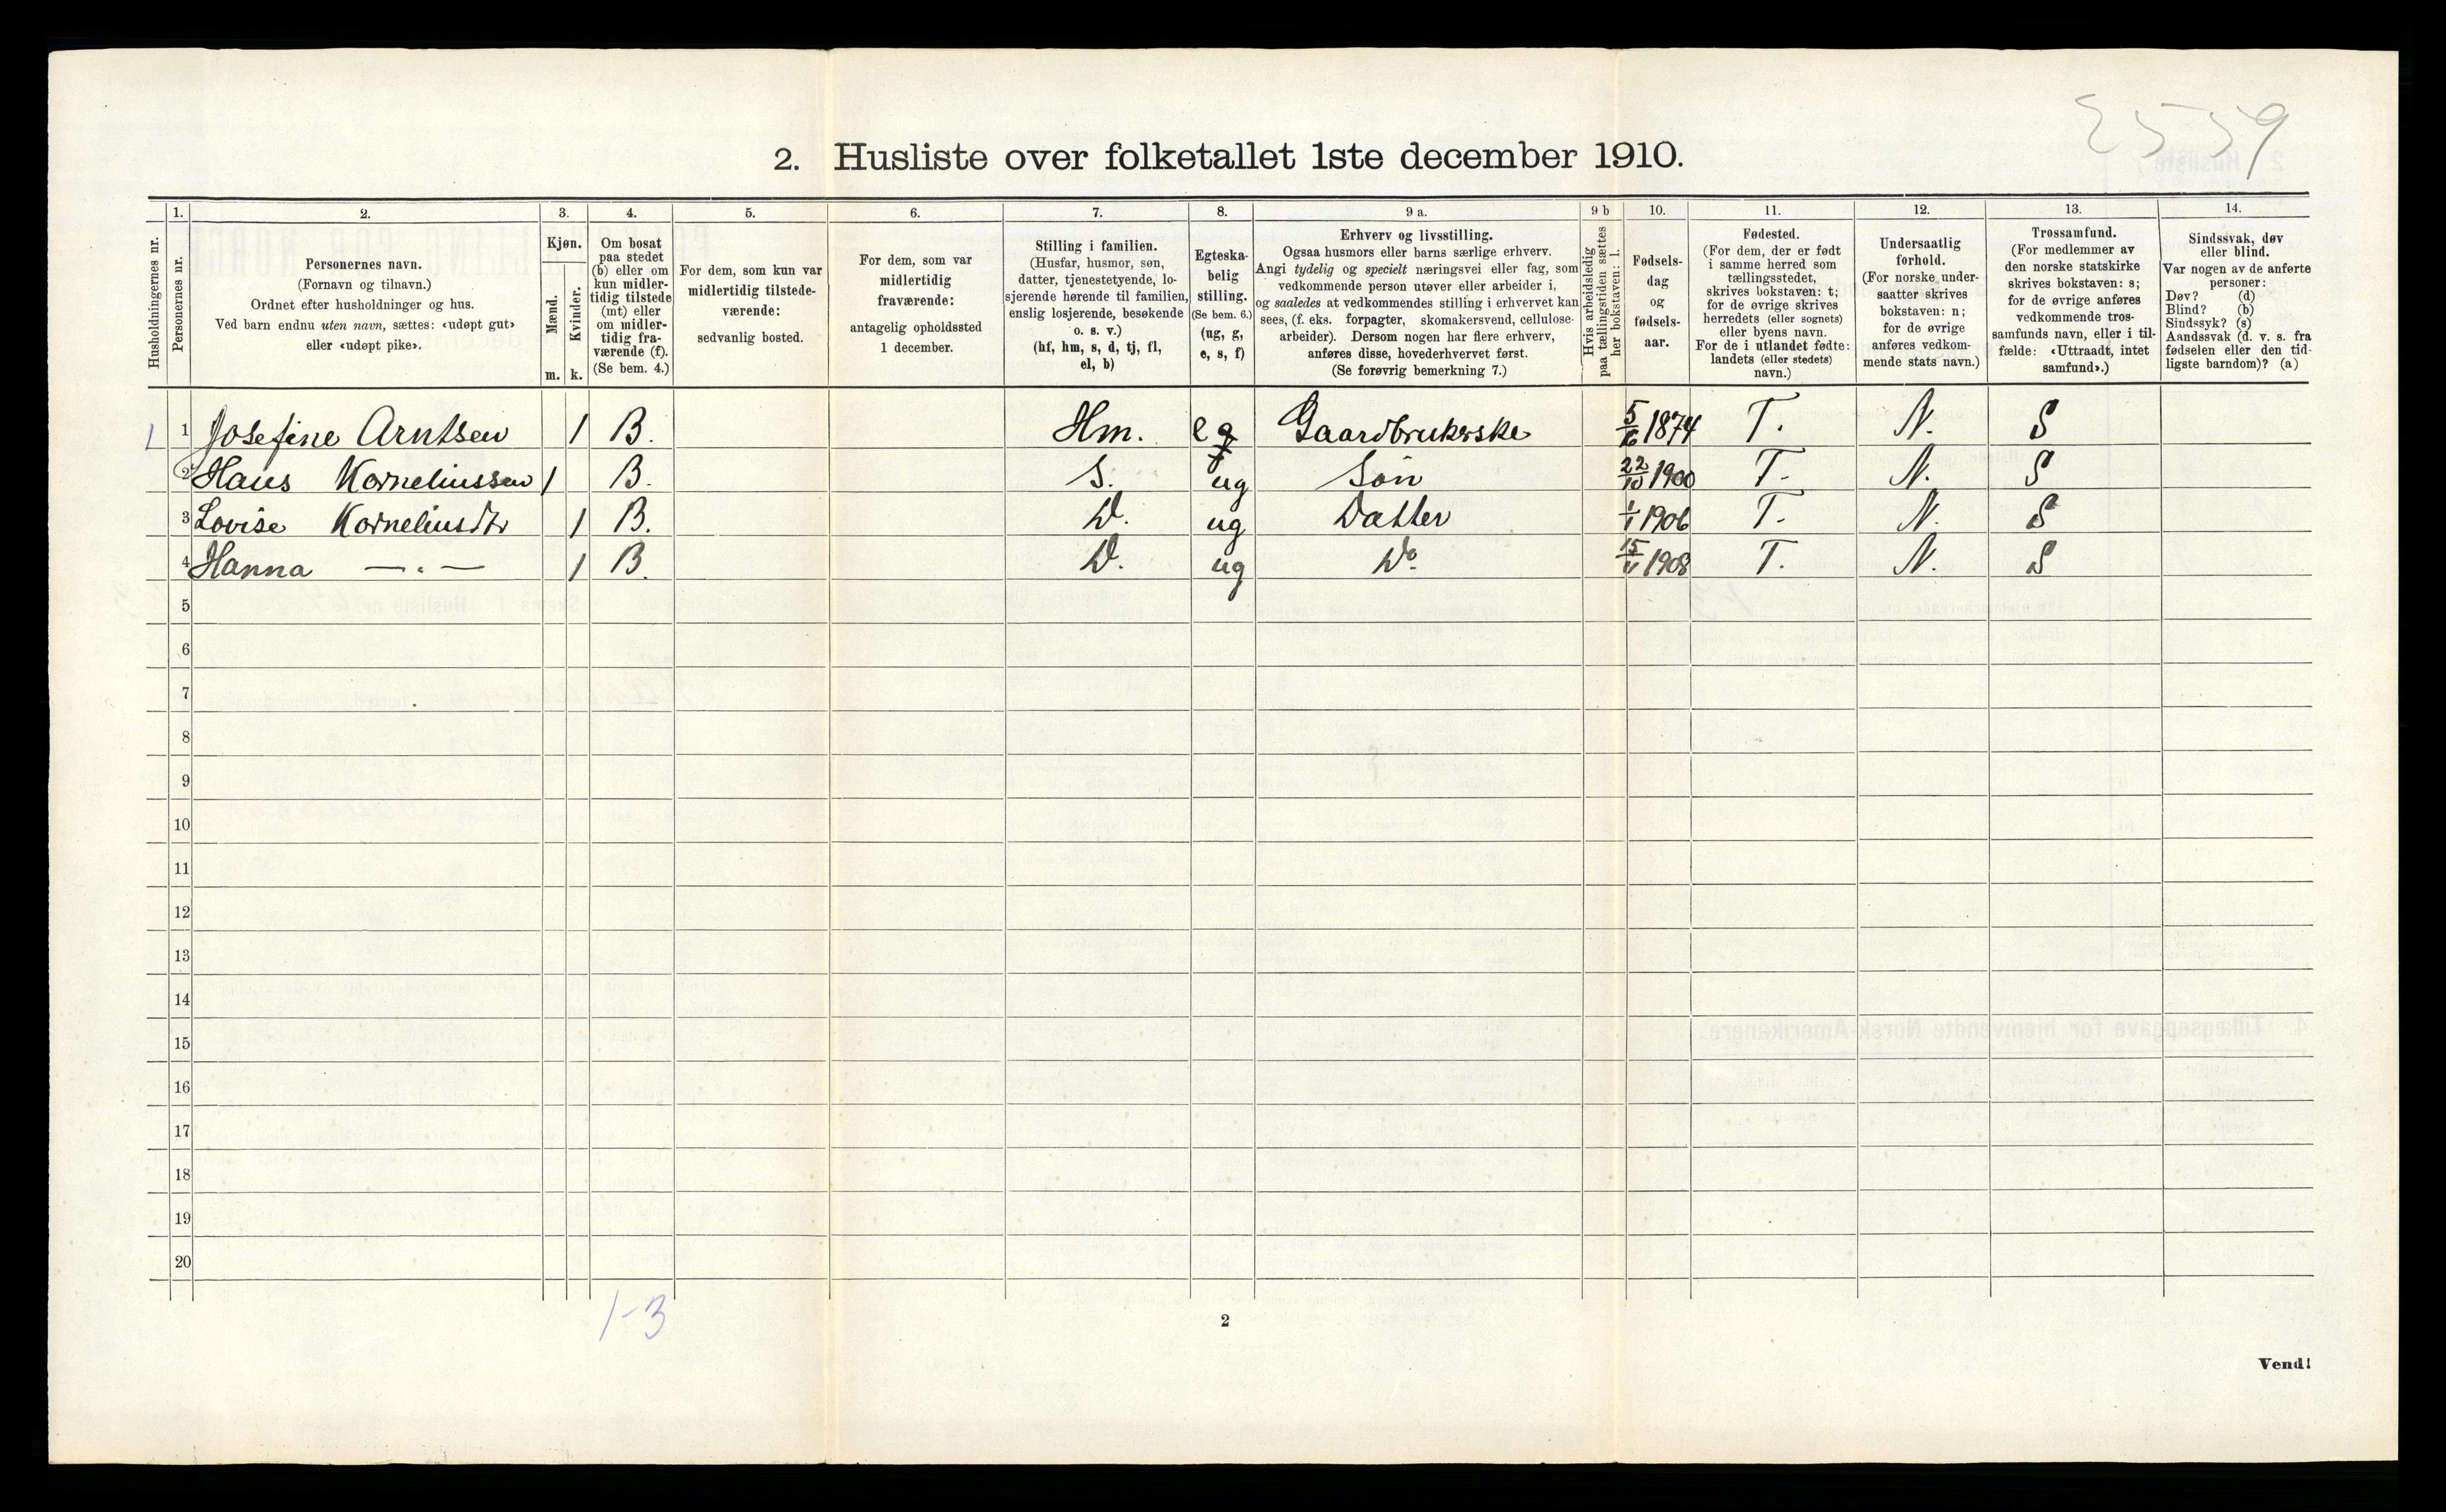 2559
2. Husliste over folketallet 1ste december 1910.
1. 2. 3. 4. 5. 6. 7. 8. 9 a. 9 b 10. 11. 12. 13. 14.
Husholdningernes nr.
Personernes nr.
Personernes navn.
(Fornavn og tilnavn.)
Ordnet efter husholdninger og hus.
Ved barn endnu uten navn, sættes: «udøpt gut»
eller «udøpt pike».
Kjøn.
Mænd.
Kvinder.
m. k.
Om bosat
paa stedet
(b) eller om
kun midler-
tidig tilstede
(mt) eller
om midler-
tidig fra-
værende (f).
(Se bem. 4.)
For dem, som kun var
midlertidig tilstede-
værende:
sedvanlig bosted.
For dem, som var
midlertidig
fraværende:
antagelig opholdssted
1 december.
Stilling i familien.
(Husfar, husmor, søn,
datter, tjenestetyende, lo-
sjerende hørende til familien,
enslig losjerende, besøkende
o. s. v.)
(hf, hm, s, d, tj, fl,
el, b)
Egteska-
belig
stilling.
(Se bem. 6.)
(ug, g,
e, s, f)
Erhverv og livsstilling.
Ogsaa husmors eller barns særlige erhverv.
Angi tydelig og specielt næringsvei eller fag, som
vedkommende person utøver eller arbeider i,
og saaledes at vedkommendes stilling i erhvervet kan
sees, (f. eks. forpagter, skomakersvend, cellulose-
arbeider). Dersom nogen har flere erhverv,
anføres disse, hovederhvervet først.
(Se forøvrig bemerkning 7.)
Hvis arbeidsledig
paa tællingstiden sættes
her bokstaven: l.
Fødsels-
dag
og
fødsels-
aar.
Fødested.
(For dem, der er født
i samme herred som
tællingsstedet,
skrives bokstaven: t;
for de øvrige skrives
herredets (eller sognets)
eller byens navn.
For de i utlandet fødte:
landets (eller stedets)
navn.)
Undersaatlig
forhold.
(For norske under-
saatter skrives
bokstaven: n;
for de øvrige
anføres vedkom-
mende stats navn.)
Trossamfund.
(For medlemmer av
den norske statskirke
skrives bokstaven: s;
for de øvrige anføres
vedkommende tros-
samfunds navn, eller i til-
fælde: «Uttraadt, intet
samfund».)
Sindssvak, døv
eller blind.
Var nogen av de anførte
personer:
Døv? (d)
Blind? (b)
Sindssyk? (s)
Aandssvak (d. v. s. fra
fødselen eller den tid-
ligste barndom)? (a)
1 1 Josefine Arntsen 1 B. Hm. Gaardbrukerske 5/6 1874 T. N. S
2 Hans Korneliussen 1 B. S. ug Søn 22/10 1900 T. N. S
3 Lovise Korneliusdtr 1 B. D. ug Datter 1/1 1906 T. N. S
4 Hanna —"— 1 B. D. ug Do 1908 T. N. S
5
6
7
8
9
10
11
12
13
14
15
16
17
18
19
20
1-3
2
Vend!